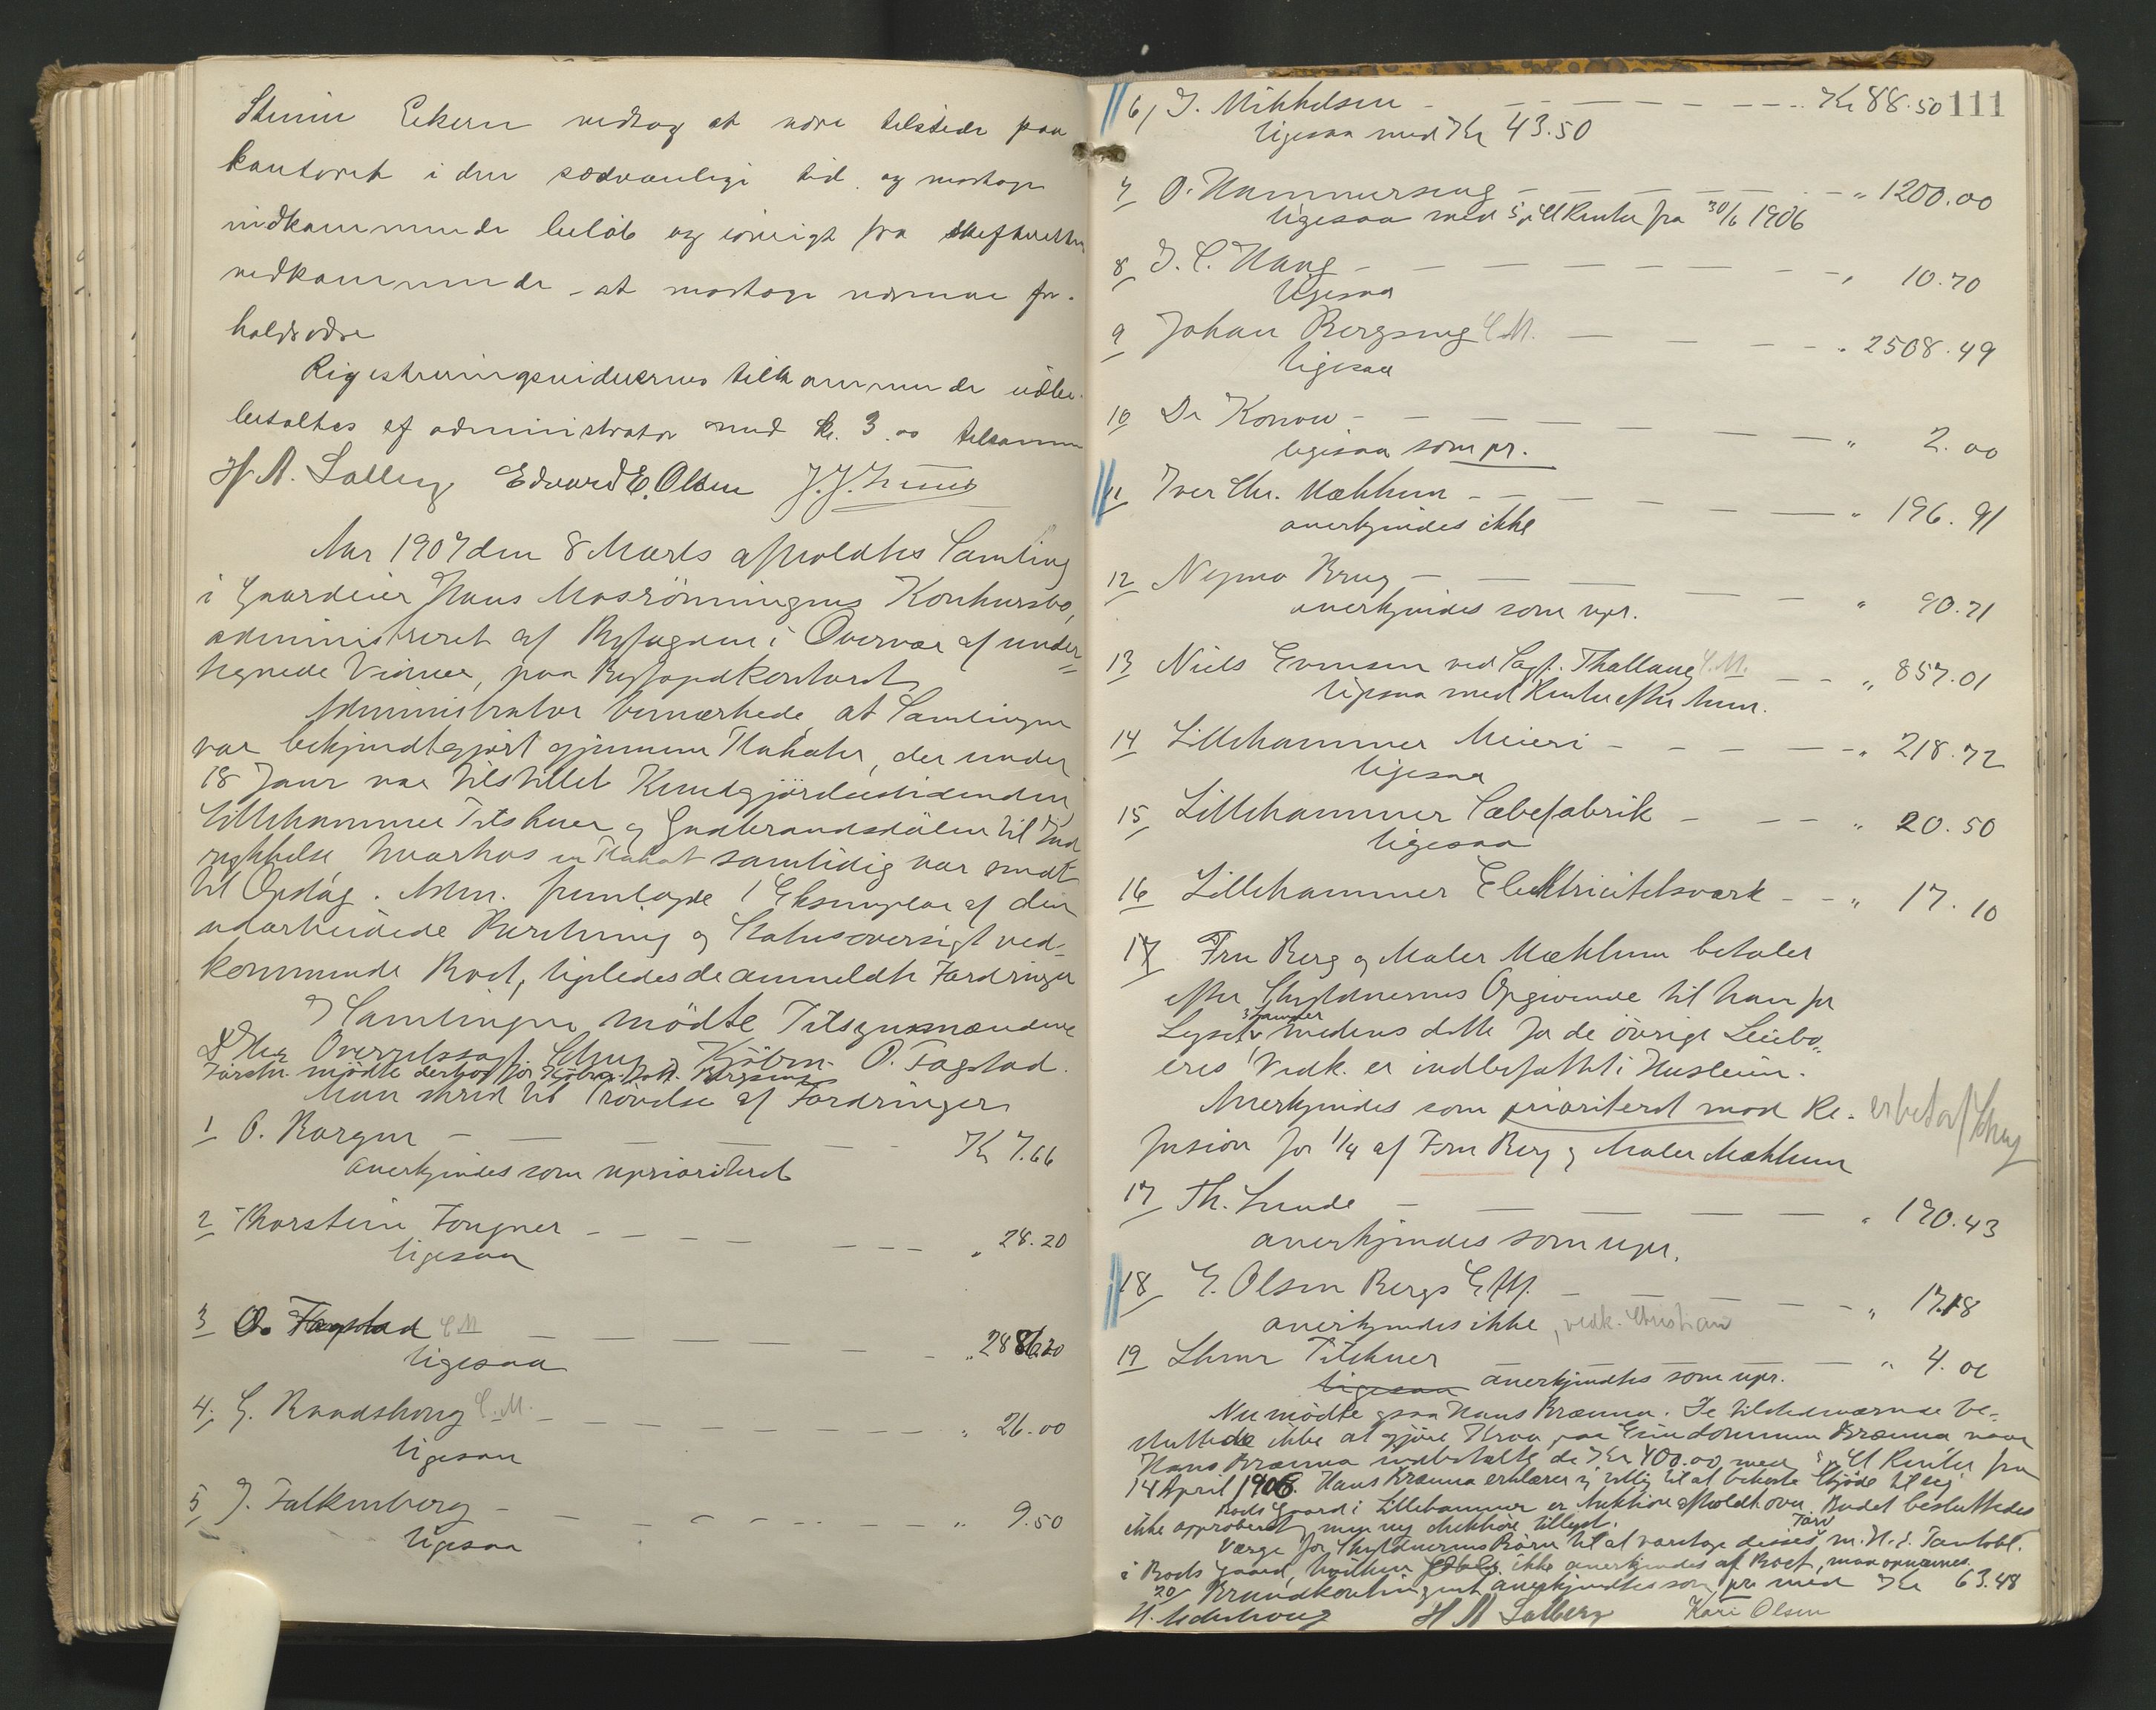 Ekern vedtog at være tilstede paa
kontoret i den sædvanlige tid og modtage
indkommende beløb og iøvrigt fra skifteretten
vedkommende at modtage nærmere for-
holdsordre
Registreringsvidnernes tilkommende
betaltes af administrator med kr. 3.00 tilsammen
H. A. Salberg Edvard E. Olsen
Aar 1907 den 8 Marts afholdtes Samling
i Gaardeier Hans Mosrönningens Konkursbo,
administreret af Byfogden i Overvær af under-
tegnede Vidner, paa Byfogedkontoret
Administrator bemærkede at Samlingen
var bekjendtgjørt gjennem Plakater, der under
18 Janr var tilstillet Kundgjørelsestidenden
Lillehammer Tilskuer og Gudbrandsdølen til Ind
rykkelse hvorhos en Plakat samtidig var sendt
til Opslag. Adm. fremlagde 1 Exemplar af den
udarbeidede Beretning og Statusoversigt ved-
kommende Boet, ligeledes de anmeldte Fordringer
I Samlingen mödte Tilsynsmændene
Overretssagf. Schug og Kjöbm. O. Fagstad.
mödte derhos for
Man skred til Prövelse af Fordringer
1 O. Borgen - - - - Kr 7.66
anerkjendes som uprioriteret
2 Thorstein Fougner - - - - - - - „ 28.20
ligesaa
3 O. Fagstad C M - - - - - „
ligesaa
4. G. Raadshoug C. M. - - - - - - - - „ 26.00
ligesaa
5 J. Falkenberg - - - - - - - - „ 9.50
ligesaa
111
6, J. Mikkelsen - - - - - - - - Kr 88.50
ligesaa med Kr 43.50
7 O. Hammerseng - - - - - - - „ 1200.00
ligesaa med 5 pCt Renter fra 30/6 1906
8 J. C. Haug - - - - - - - - „ 10.70
ligesaa
9 Johan Bergseng C M. - - - - „ 2508.49
ligesaa
10 Dr Konow - - - - - - „ 2.00
ligesaa som pr.
11 Iver Chr. Mæhlum - - - - - - „ 196.91
anerkjendes ikke
12 Nymo Brug - - - - - „ 90.71
anerkjendes som upr.
13 Niels Evensen ved Sagf. Thallaug C. M. - - „ 857.01
ligesaa med Renter efter Anm.
14 Lillehammer Meieri - - - - - „ 218.72
ligesaa
15 Lillehammer Sæbefabrik - - - „ 20.50
ligesaa
16 Lillehammer Elektricitetsværk - - „ 17.10
17 Fru Berg og Maler Mæhlum betaler
efter Skyldnernes Opgivende til ham for
Lyset 3 Lamper medens dette for de övrige Leiebo-
eres Vedk. er indbefattet i Husleien.
Anerkjendes som prioriteret mod Re-
fusion for 1/4 af Fru Berg og Maler Mæhlum
17 Th. Lunde - - - - - „ 190.43
anerkjendes som upr.
18 E. Olsen Bergs Eftf. - - - - - „ 17.18
anerkjendes ikke, vedk. Christian
19 Tilskuer - - - - - „ 4.00
ligesaa anerkjendtes som upr.
Nu mödte ogsaa Hans Brænna. De tilstedeværende be-
sluttede ikke at gjöre Krav paa Eiendommen Brænna naar
Hans Brænna indbetalte de Kr 400.00 med 5 pCt Renter fra
14 April 1906. Hans Brænna erklærer sig villig til at bekoste Skjöde til sig
Boets Gaard i Lillehammer er Auktion afholdt over. Budet besluttedes
ikke approberet, men ny Auktion tillyst.
Værge for Skyldnernes Börn til at varetage disses Tarv m. H. t. Pantobl.
i Boets Gaard, hvilken ikke anerkjendes af Boet, maa opnævnes.
20 Brandkontingent anerkjendtes som pr. med Kr 63.48
H A Salberg Kari Olsen